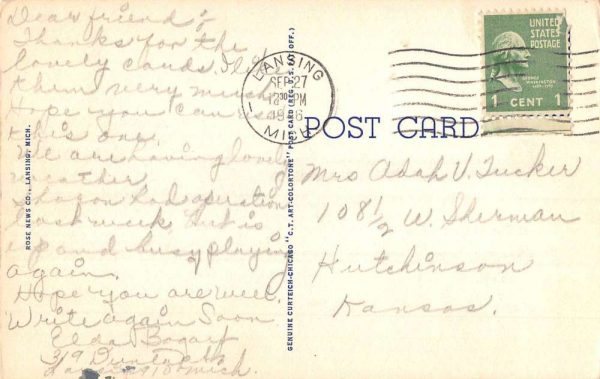 Dear friend:-
Thanks for the
lovely cards, I like
them very much
Hope you can use
this one.
We are having lovely
weather
Sharon had operation
last week but is
up and busy playing
again.
Hope you are well.
Write again Soon
Elda Bogart
319
Lansing 10 Mich.
ROSE NEWS CO., LANSING, MICH.
GENUINE CURTEICH-CHICAGO "C.T. ART-COLORTONE" POST CARD (REG. U.S. PAT. OFF.)
LANSING
SEP 27
12 30 PM
MICH
POST CARD
UNITED
STATES
POSTAGE
GEORGE
WASHINGTON
1 CENT 1
Mrs Adah V. Tucker
108 1/2 W. Sherman
Hutchinson
Kansas.